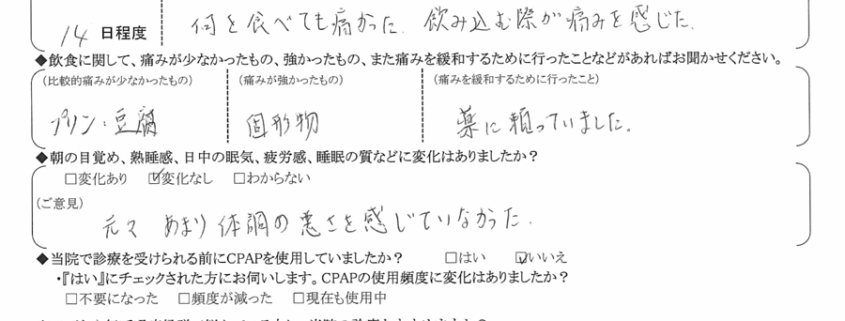 14 日程度
何を食べても痛かった。飲み込む際が痛みを感じた。
◆飲食に関して、痛みが少なかったもの、強かったもの、また痛みを緩和するために行ったことなどがあればお聞かせください。
(比較的痛みが少なかったもの) (痛みが強かったもの) (痛みを緩和するために行ったこと)
プリン・豆腐 固形物 薬に頼っていました。
◆朝の目覚め、熟睡感、日中の眠気、疲労感、睡眠の質などに変化はありましたか？
□変化あり ☑変化なし □わからない
(ご意見)
元々 あまり体調の悪さを感じていなかった。
◆当院で診療を受けられる前にCPAPを使用していましたか？ □はい ☑いいえ
・『はい』にチェックされた方にお伺いします。CPAPの使用頻度に変化はありましたか？
□不要になった □頻度が減った □現在も使用中